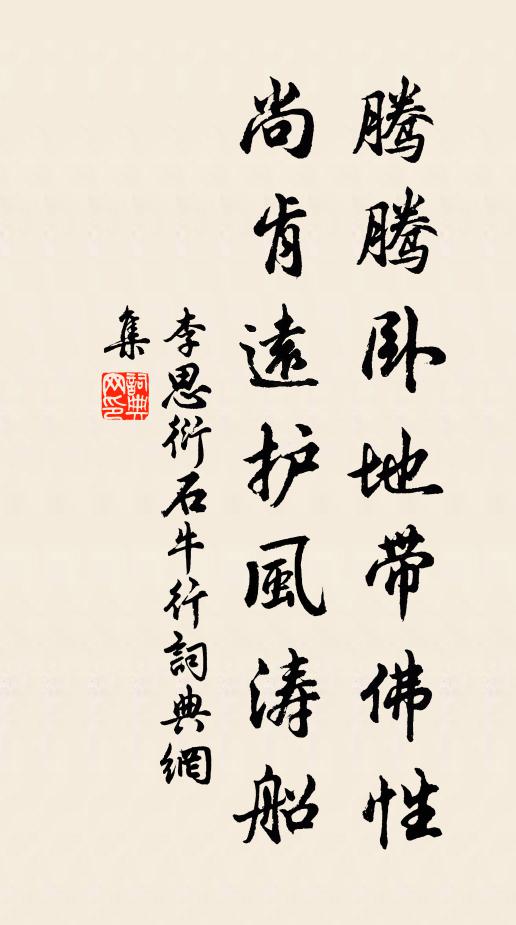 腾腾卧地带佛性
尚肯遠护風涛船
李思衍石牛行詞典網
集
詞典
网印